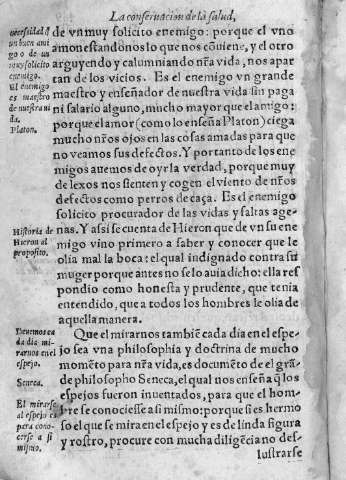 La conseruacion de la salud,
de vn muy solicito enemigo: porque el vno
amonestandonos lo que nos cõuiene, y el otro
arguyendo y calumniando nr̃a vida, nos apar
tan de los vicios. Es el enemigo vn grande
maestro y enseñador de nuestra vida sin paga
ni salario alguno, mucho mayor que el amigo:
porque el amor (como lo enseña Platon) ciega
mucho nr̃os ojos en las cosas amadas para que
no veamos sus defectos. Y por tanto de los ene
migos auemos de oyr la verdad, porque muy
de lexos nos sienten y cogen el viento de nr̃os
defectos como perros de caça. Es el enemigo
solicito procurador de las vidas y faltas age-
nas. Y assi se cuenta de Hieron que de vn su ene
migo vino primero a saber y conocer que le
olia mal la boca: el qual indignado contra su
muger porque antes no se lo auia dicho: ella res
pondio como honesta y prudente, que tenia
entendido, que a todos los hombres le olia de
aquella manera.
Que el mirarnos tambiẽ cada dia en el espe-
jo sea vna philosophia y doctrina de mucho
momẽto para nr̃a vida, es documẽto de el grã-
de philosopho Seneca, el qual nos enseña q̃ los
espejos fueron inuentados, para que el hom-
bre se conociesse asi mismo: porque si es hermo
so el que se mira en el espejo y es de linda figura
y rostro, procure con mucha diligẽcia no des-
lustrarse
necessidad d̃
un buen ami
go o de un
muy solicito
enemigo.
El enemigo
es maestro
de nuestra ui
da.
Platon.
Historia de
Hieron al
proposito.
Deuemos ca
da dia mi-
rarnos en el
espejo.
Seneca.
El mirarse
al espejo es
para cono-
cerse a si
mismo.